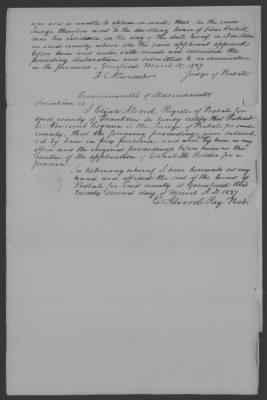 was and is unable to appear in court; that the said
Judge therefore went to the dwelling house of
her residence on the day of the date hereof in New Salem
in said county, where she the said applicant appeared
before him and under oath made and subscribed the
preceding declaration and submitted to an examination
in the premises - Greenfield March 15, 1837
R E Newcomb Judge of Probate
Commonwealth of Massachusetts
Franklin ss
I Elijah Alvord, Register of Probate for
said county of Franklin do hereby certify that Richard
E. Newcomb Esquire is the Judge of Probate for said
county, that the foregoing proceedings were
by him in my presence, and are by him in my
office and the original proceedings before him in the
matter of the application of Elizabeth Holden for a
pension.
In testimony whereof I have hereunto set my
hand and affixed the seal of the Court of
Probate for said county at Greenfield this
twenty second day of March A D 1837
E. Alvord Reg. Prob.